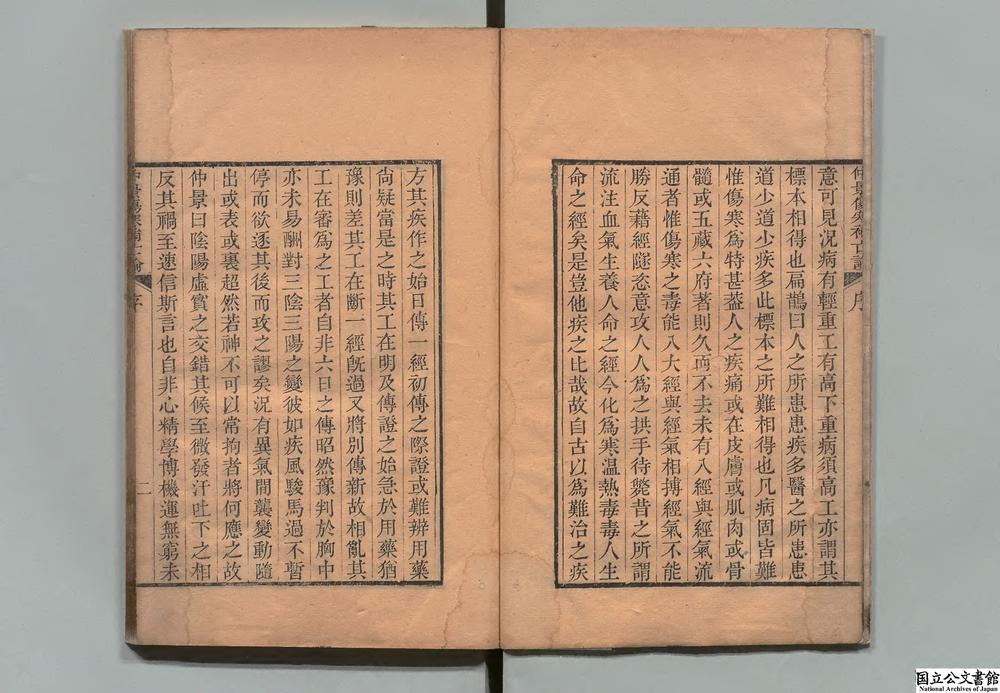 仲景傷寒補亡論 序
意可見況病有輕重工有高下重病須高工亦謂其
標本相得也扁鵲曰人之所患患疾多醫之所患患
道少道少疾多此標本之所難相得也凡病固皆難
惟傷寒爲特甚葢人之疾痛或在皮膚或肌肉或骨
髓或五藏六府著則久而不去未有入經與經氣流
通者惟傷寒之毒能入大經與經氣相搏經氣不能
勝反藉經隧恣意攻人人爲之拱手待斃昔之所謂
流注血氣生養人命之經今化爲寒温熱毒毒人生
命之經矣是豈他疾之比哉故自古以爲難治之疾
方其疾作之始日傳一經初傳之際證或難辨用藥
尙疑當是之時其工在明及傳證之始急於用藥猶
豫則差其工在斷一經旣過又將別傳新故相亂其
工在審爲之工者自非六日之傳昭然豫判於胸中
亦未易酬對三陰三陽之變彼如疾風駿馬過不暫
停而欲逐其後而攻之謬矣況有異氣間襲變動隨
出或表或裏超然若神不可以常拘者將何應之故
仲景曰陰陽虛實之交錯其候至微發汗吐下之相
反其禍至速信斯言也自非心精學博機運無窮未
仲景傷寒補亡論 序 二
国立公文書館
National Archives of Japan